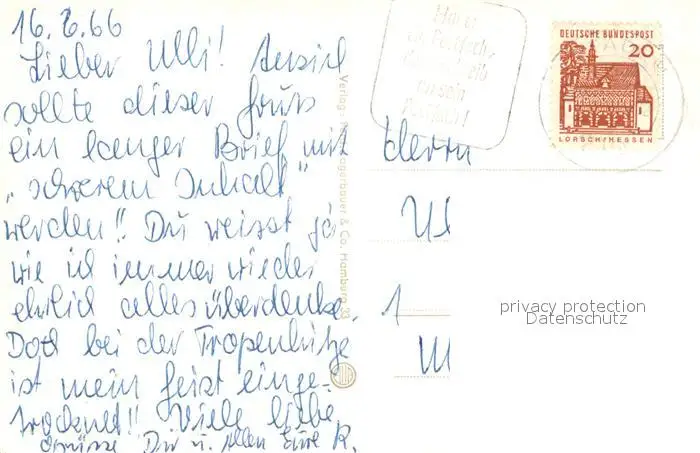 16. 6. 66
Lieber Ulli! Ansich
sollte dieser Gruss
ein langer Brief mit
"schwerem Inhalt"
werden!! Du weisst ja
wie ich immer wieder
ehrlich alles überdenke.
Doch bei der Tropenhitze
ist mein Geist einge-
trocknet!! Viele liebe
Grüsse Dir u. allen Eure R.
Verlag: Hagerbauer & Co., Hamburg 33
Hast
ein Postfach
schreib
an sein
Postfach!
DEUTSCHE BUNDESPOST
20
LORSCH/HESSEN
Herrn
Ul
1
M
privacy protection
Datenschutz